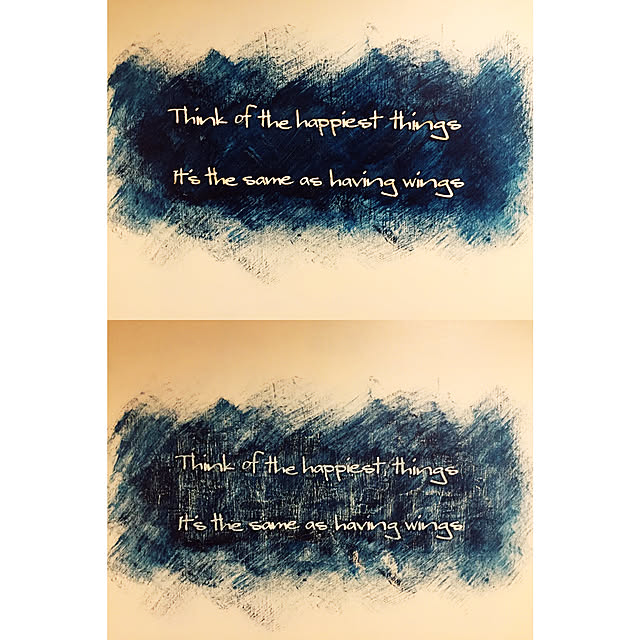 Think of the happiest things
It's the same as having wings
Think of the happiest things
It's the same as having wings